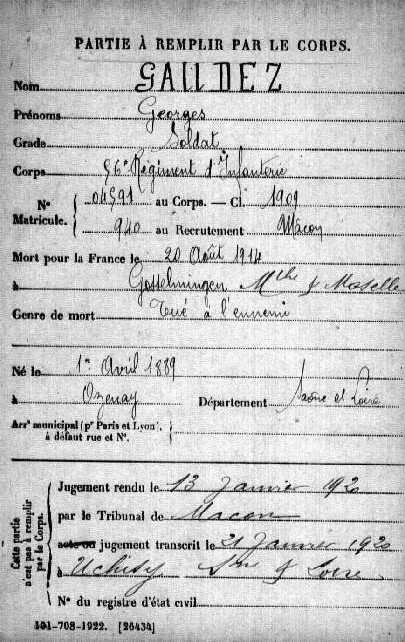 PARTIE À REMPLIR PAR LE CORPS.
Nom GAUDEZ
Prénoms Georges
Grade Soldat
Corps 56e Régiment d'Infanterie
N° Matricule. { 04591 au Corps. — Cl. 1909
940 au Recrutement Mâcon
Mort pour la France le 20 Août 1914
à Gosselmingen Mthe & Moselle
Genre de mort Tué à l'ennemi
Né le 1er Avril 1889
à Ozenay Département Saône et Loire
Arrt municipal (pr Paris et Lyon), à défaut rue et N°.
Cette partie n'est pas à remplir par le Corps.
Jugement rendu le 13 Janvier 1920
par le Tribunal de Macon
acte ou jugement transcrit le 21 Janvier 1920
à Uchizy Sne & Loire
N° du registre d'état civil
101-708-1922. [26434]